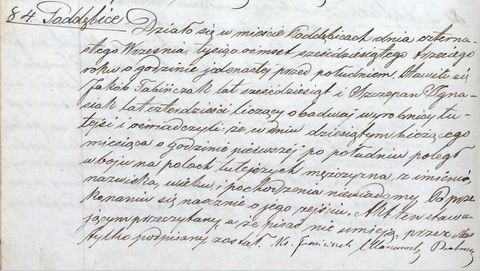 84 Poddębice Działo się w mieście Poddębicach dnia czterna-
stego Września tysiąc ośmset sześćdziesiątego trzeciego
roku o godzinie jedenastej przed południem. Stawili się
Jakób Tabińczak lat sześćdziesiąt i Szczepan
lat czterdzieści liczący obadwaj wyrobnicy tu-
tejsi i oświadczyli że w dniu dziesiątym bieżącego
miesiąca o godzinie pierwszej po południu poległ
w boju na polach tutejszych mężczyzna z imienia
nazwiska, wieku i pochodzenia niewiadomy. Po prze-
konaniu się naocznie o jego zejściu, Akt ten stawa-
jącym przeczytany, a że pisać nie umieją, przez Nas
tylko podpisany został. Ks.